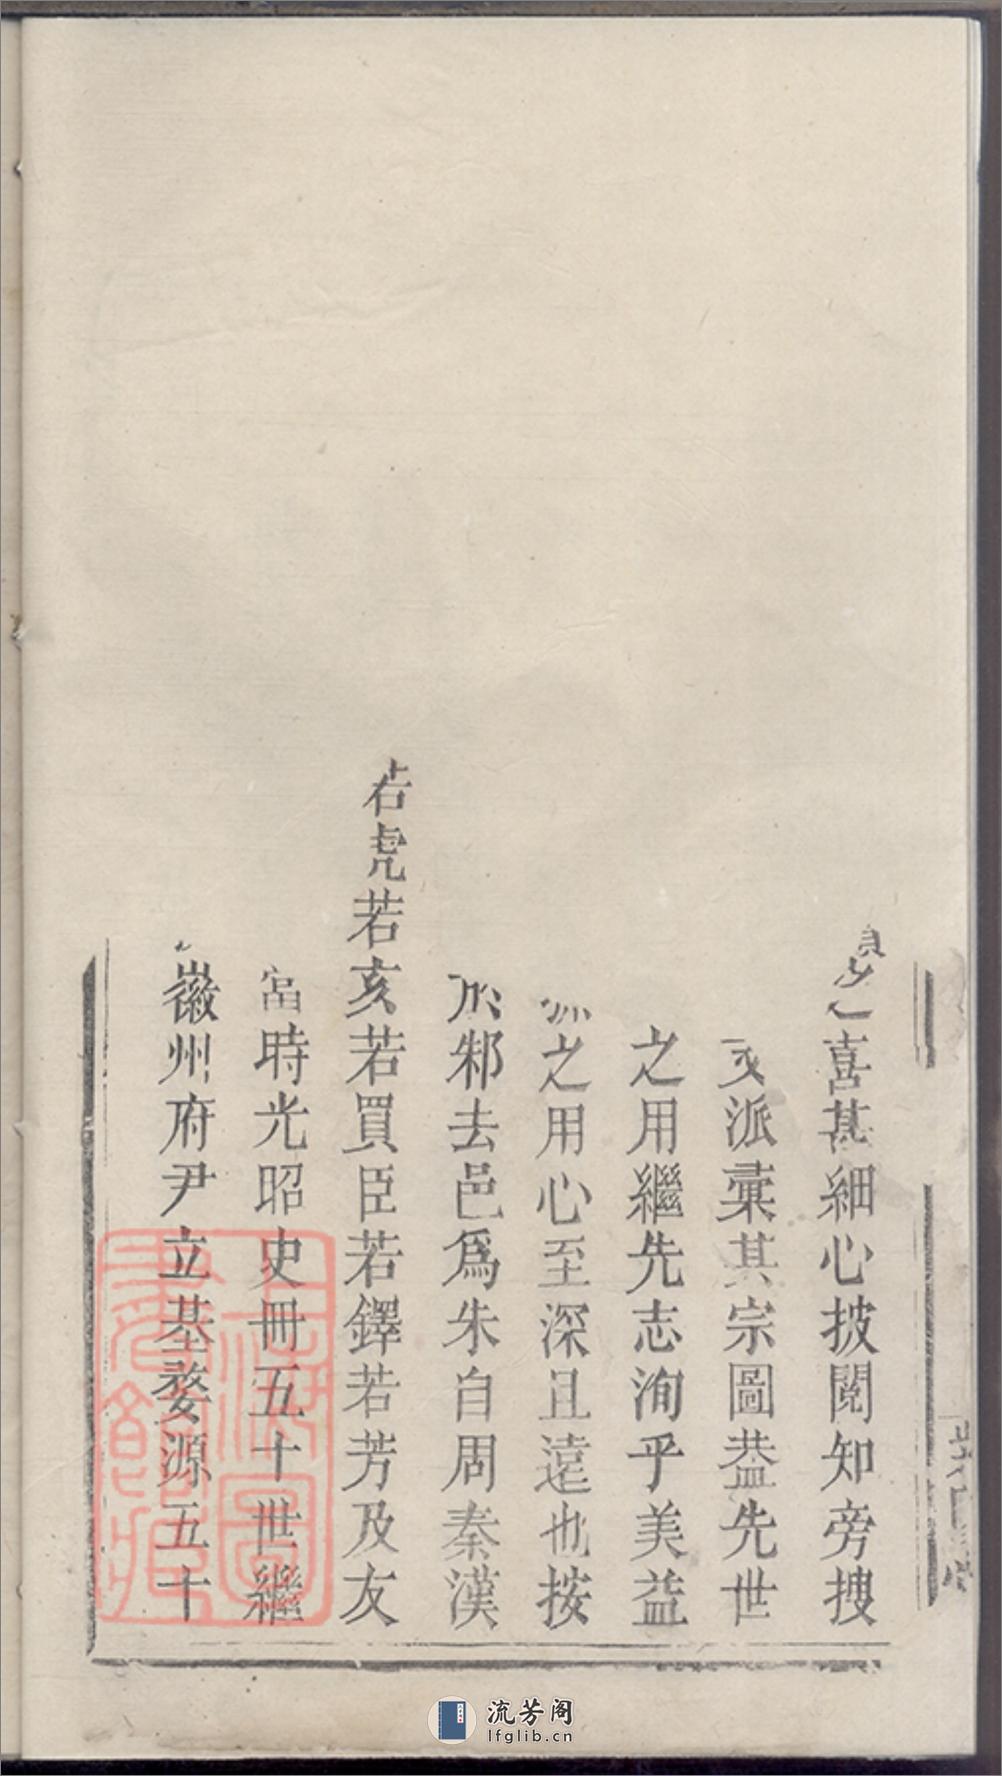 喜甚細心披閱知旁搜
派彙其宗圖葢先世
之用繼先志洵乎美益
之用心至深且遠也按
邾去邑爲朱自周秦漢
若虎若亥若買臣若鐸若芳及友
當時光昭史冊五十世繼
徽州府尹立基婺源五十
流芳阁
lfglib.cn